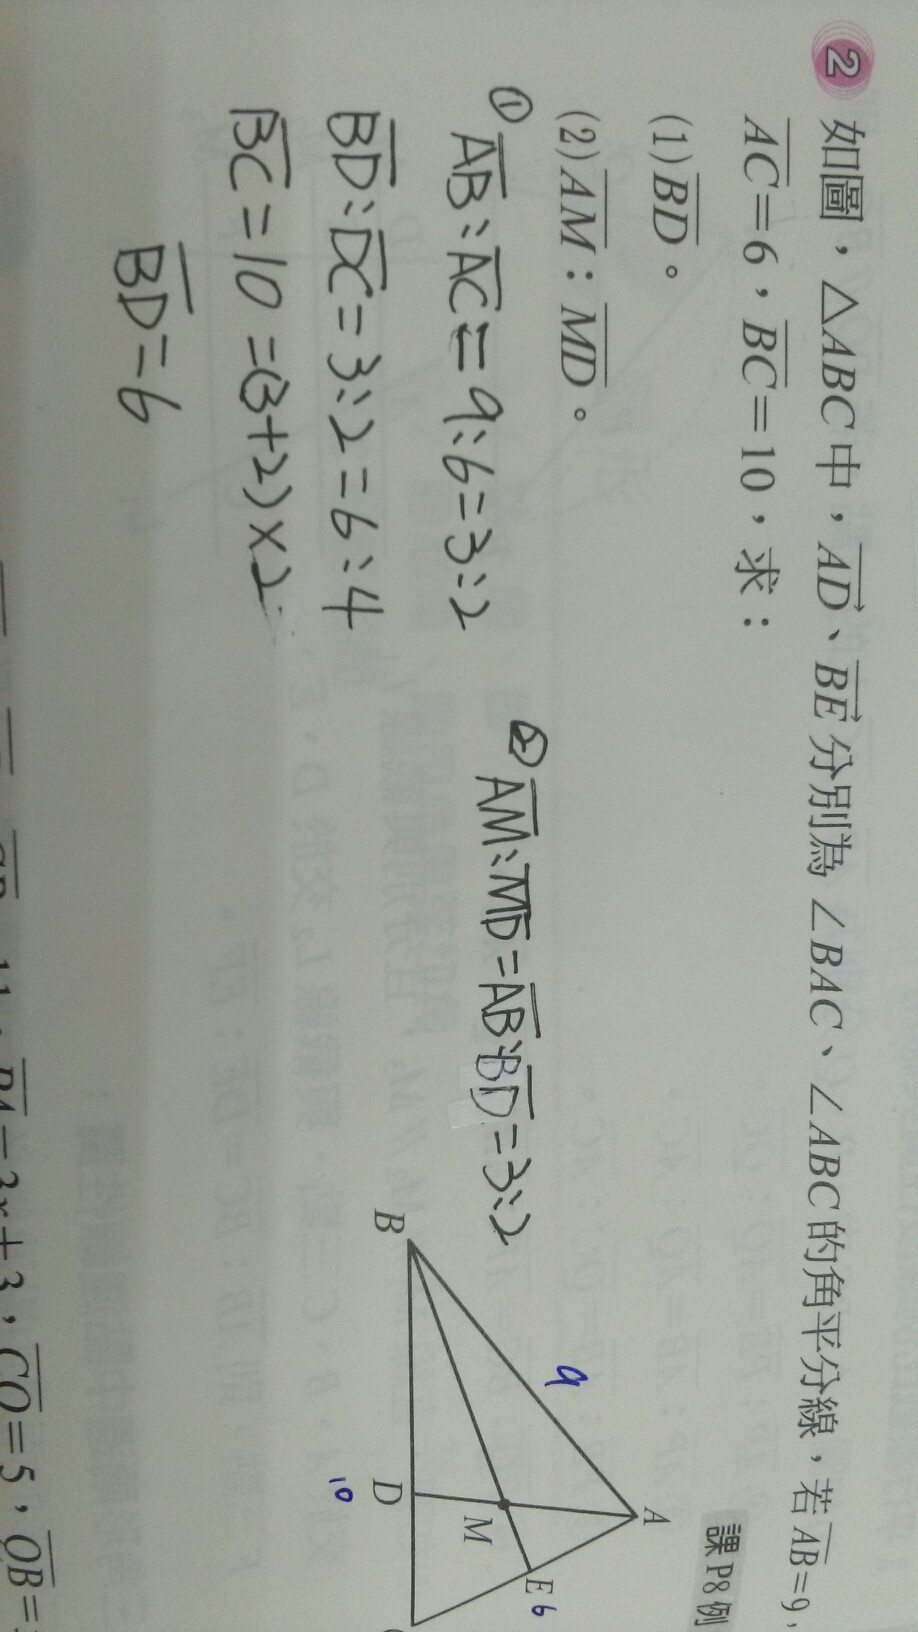 2 如圖，△ABC中，AD、BE分別為∠BAC、∠ABC的角平分線，若AB=9，
AC=6，BC=10，求：
(1)BD。
(2)AM：MD。
課P8例
① AB:AC=9:6=3:2
BD:DC=3:2=6:4
BC=10=(3+2)×2
BD=6
② AM:MD=AB:BD=3:2
A
B
C
D
E
M
9
6
10
PA=3x+3，CO=5，OB=